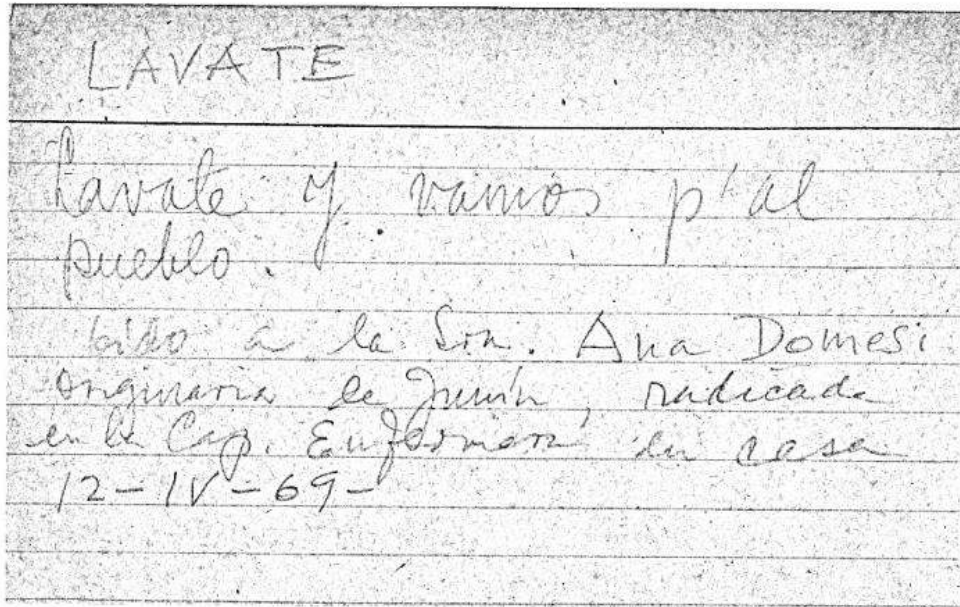 LAVATE
Lavate y vamos p'al
pueblo.
oido a la Sra. Ana Domesi
originaria de Junín, radicada
en la Cap. Enfermera en casa
12-IV-69-